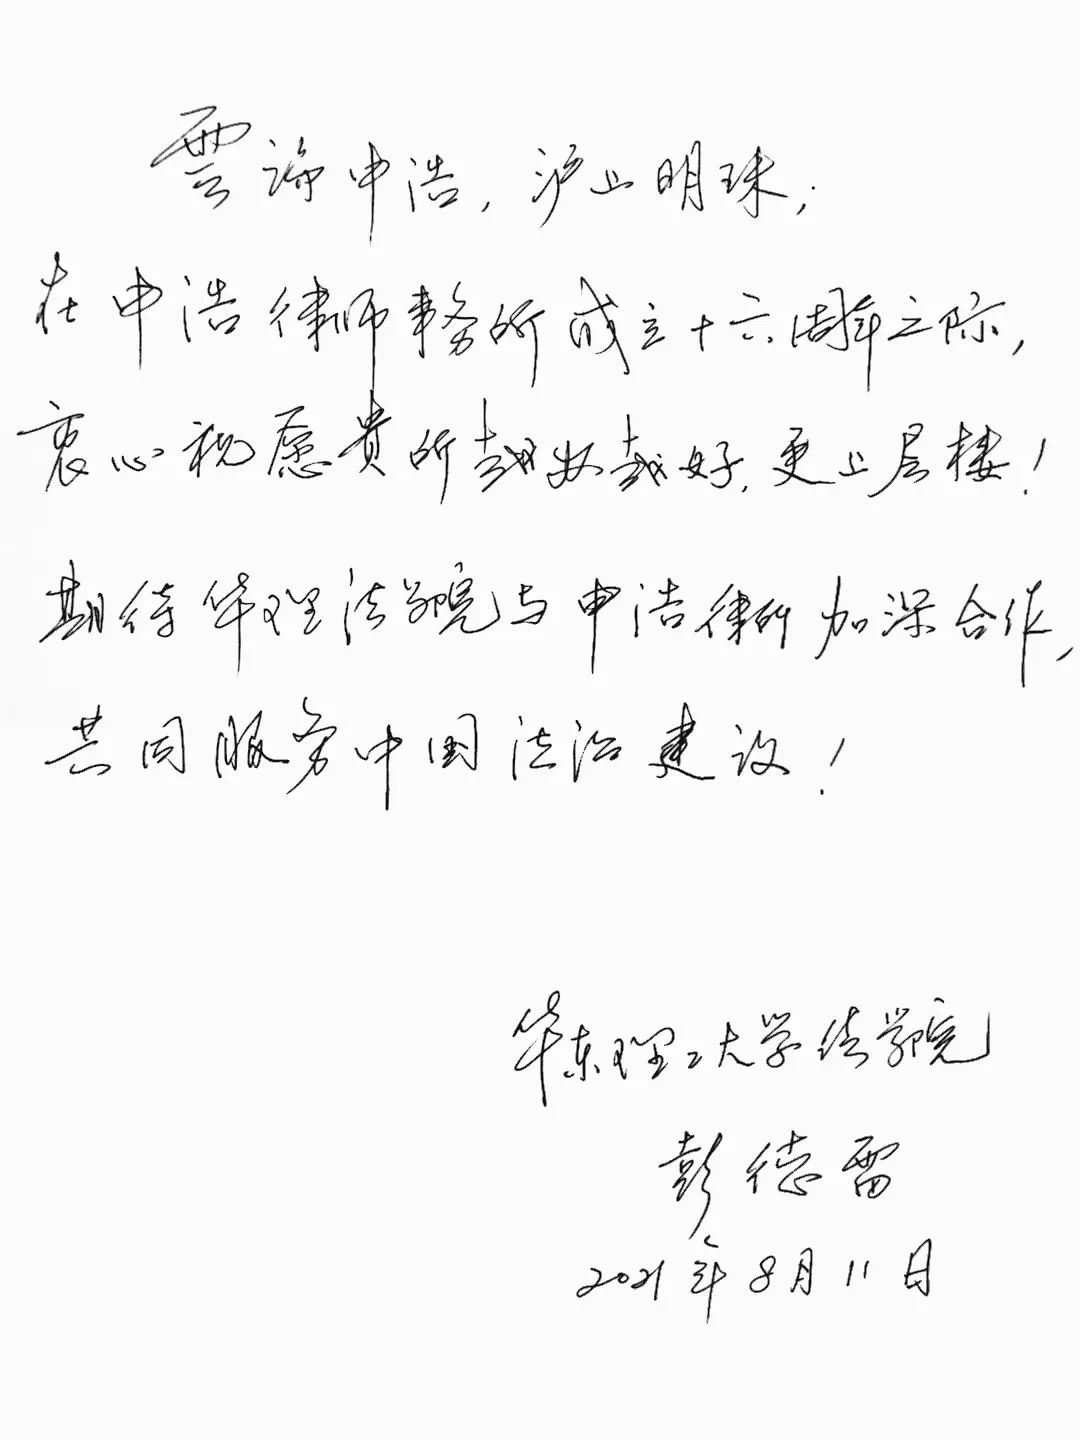 雲申浩，沪上明珠；
在申浩律师事務所成立十六周年之际，
衷心祝愿貴所越办越好，更上层楼！
期待华理法学院与申浩律所加深合作，
共同服务中国法治建设！
华东理工大学法学院
彭德雷
2021年8月11日